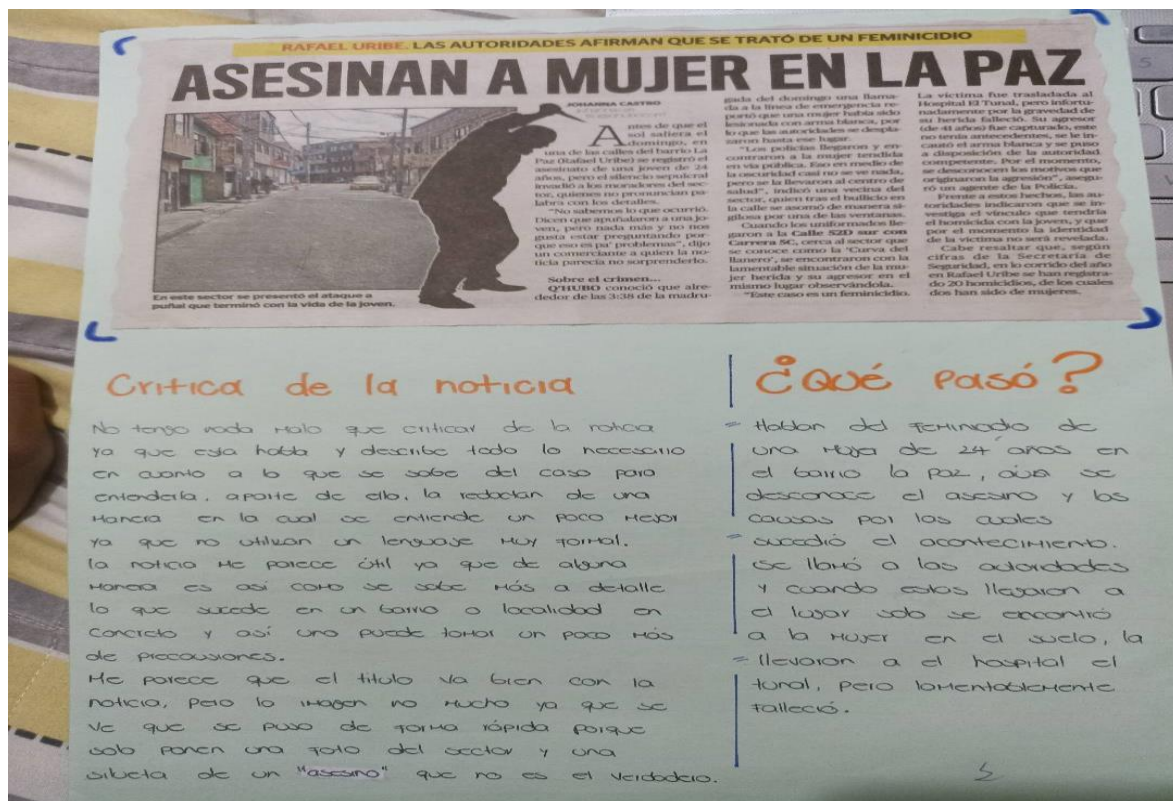 RAFAEL URIBE. LAS AUTORIDADES AFIRMAN QUE SE TRATÓ DE UN FEMINICIDIO
ASESINAN A MUJER EN LA PAZ
JOHANNA CASTRO
Antes de que el
sol saliera el
domingo, en
una de las calles del barrio La
Paz (Rafael Uribe) se registró el
asesinato de una joven de 24
años, pero el silencio sepulcral
invadió a los moradores del sec-
tor, quienes no pronuncian pa-
labra con los detalles.
"No sabemos lo que ocurrió.
Dicen que apuñalaron a una jo-
ven, pero nada más y no nos
gusta estar preguntando por-
que eso es pa' problemas", dijo
un comerciante a quien la no-
ticia parecía no sorprenderlo.
Sobre el crimen...
Q'HUBO conoció que alre-
dedor de las 3:38 de la madru-
gada del domingo una llama-
da a la línea de emergencia re-
portó que una mujer había sido
lesionada con arma blanca, por
lo que las autoridades se despla-
zaron hasta ese lugar.
"Los policías llegaron y en-
contraron a la mujer tendida
en vía pública. Eso en medio de
la oscuridad casi no se ve nada,
pero se la llevaron al centro de
salud", indicó una vecina del
sector, quien tras el bullicio en
la calle se asomó de manera si-
gilosa por una de las ventanas.
Cuando los uniformados lle-
garon a la Calle 52D sur con
Carrera 5C, cerca al sector que
se conoce como la 'Curva del
llanero', se encontraron con la
lamentable situación de la mu-
jer herida y su agresor en el
mismo lugar observándola.
"Este caso es un feminicidio.
La víctima fue trasladada al
Hospital El Tunal, pero infortu-
nadamente por la gravedad de
su herida falleció. Su agresor
(de 41 años) fue capturado, este
no tenía antecedentes, se le in-
cautó el arma blanca y se puso
a disposición de la autoridad
competente. Por el momento,
se desconocen los motivos que
originaron la agresión", asegu-
ró un agente de la Policía.
Frente a estos hechos, las au-
toridades indicaron que se in-
vestiga el vínculo que tendría
el homicida con la joven, y que
por el momento la identidad
de la víctima no será revelada.
Cabe resaltar que, según
cifras de la Secretaría de
Seguridad, en lo corrido del año
en Rafael Uribe se han registra-
do 20 homicidios, de los cuales
dos han sido de mujeres.
En este sector se presentó el ataque a
puñal que terminó con la vida de la joven.
Critica de la noticia
No tengo nada malo que criticar de la noticia
ya que esta habla y describe todo lo necesario
en cuanto a lo que se sabe del caso para
entenderla, aparte de ello, la redactan de una
manera en la cual se entiende un poco mejor
ya que no utilizan un lenguaje muy formal.
la noticia me parece útil ya que de alguna
manera es así como se sabe más a detalle
lo que sucede en un barrio o localidad en
concreto y así uno puede tomar un poco más
de precausiones.
Me parece que el titulo va bien con la
noticia, pero la imagen no mucho ya que se
ve que se puso de forma rápida porque
solo ponen una foto del sector y una
silueta de un "asesino" que no es el verdadero.
¿Qué pasó?
Hablan del feminicidio de
una mujer de 24 años en
el barrio la paz, aún se
desconoce el asesino y las
causas por las cuales
sucedió el acontecimiento.
se llamó a las autoridades
y cuando estos llegaron a
el lugar solo se encontró
a la mujer en el suelo, la
llevaron a el hospital el
tunal, pero lamentablemente
falleció.